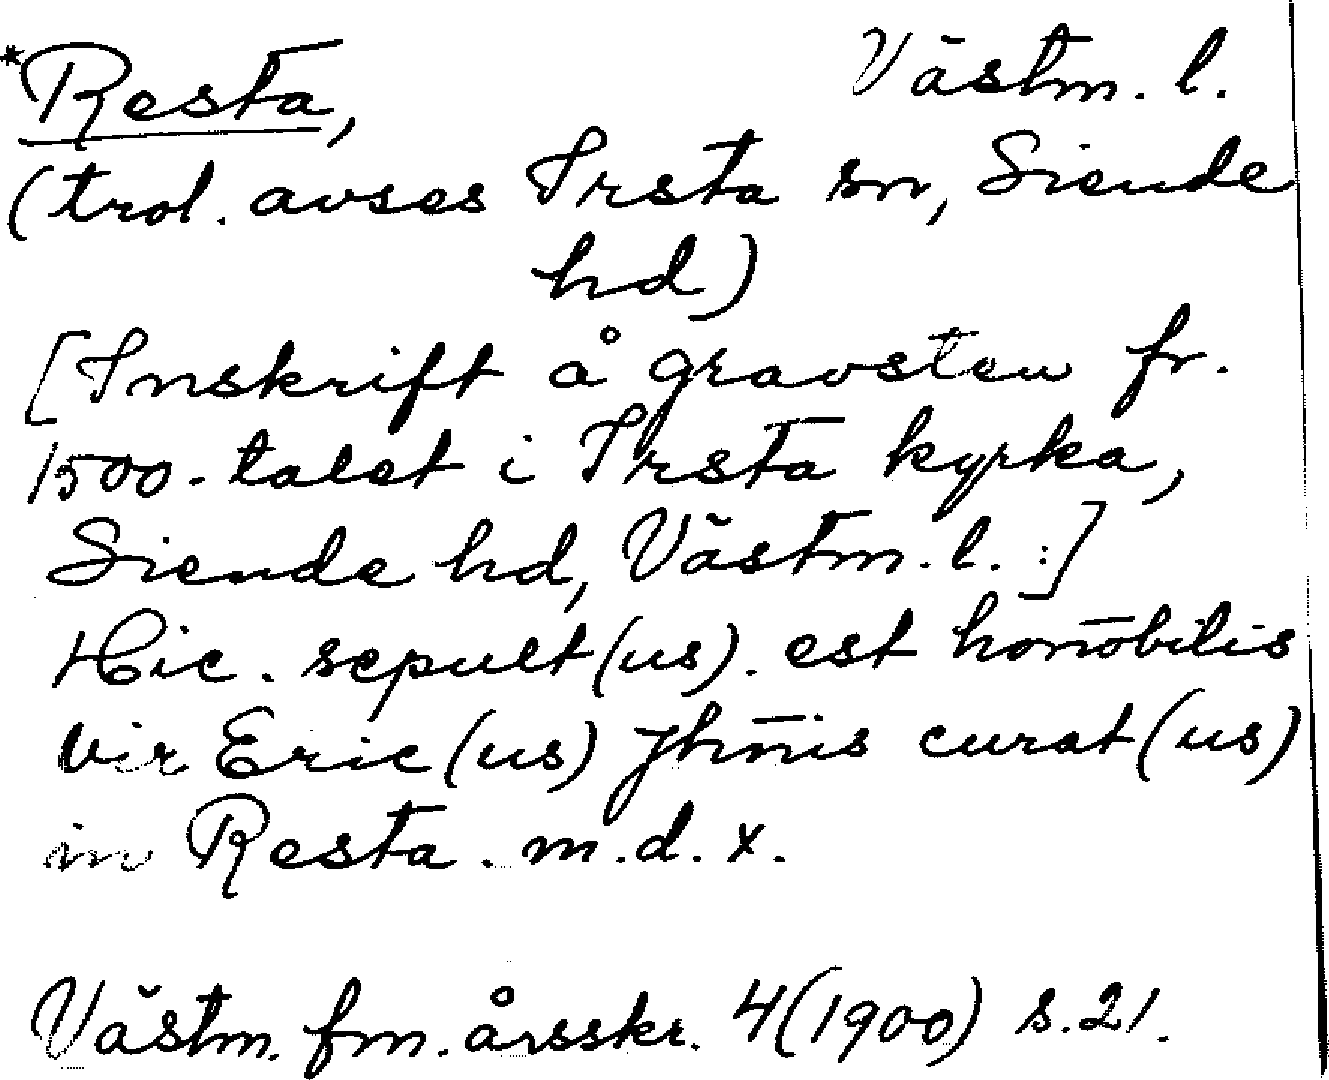 *Resta, Västm. l.
(trol. avses Irsta sn, Siende
hd)
[Inskrift å gravsten fr.
1500-talet i Irsta kyrka,
Siende hd, Västm. l. :]
Hic. sepult(us). est honōbilis
vir Eric(us) Jhn̄is curat(us)
in Resta. m.d.x.
Västm. fm. årsskr. 4(1900) s.21.